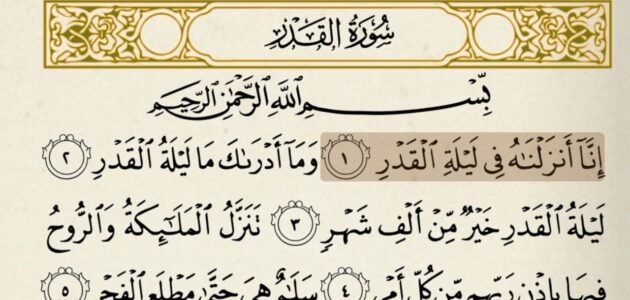 سُورَةُ القَدۡرِ
بِسۡمِ ٱللَّهِ ٱلرَّحۡمَٰنِ ٱلرَّحِيمِ
إِنَّآ أَنزَلۡنَٰهُ فِي لَيۡلَةِ ٱلۡقَدۡرِ ١ وَمَآ أَدۡرَىٰكَ مَا لَيۡلَةُ ٱلۡقَدۡرِ ٢
لَيۡلَةُ ٱلۡقَدۡرِ خَيۡرٞ مِّنۡ أَلۡفِ شَهۡرٖ ٣ تَنَزَّلُ ٱلۡمَلَٰٓئِكَةُ وَٱلرُّوحُ
فِيهَا بِإِذۡنِ رَبِّهِم مِّن كُلِّ أَمۡرٖ ٤ سَلَٰمٌ هِيَ حَتَّىٰ مَطۡلَعِ ٱلۡفَجۡرِ ٥